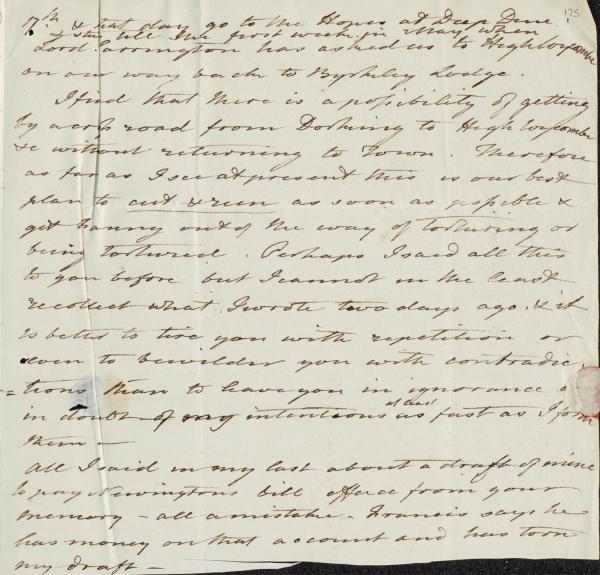 175
17th & that day go to the Hopes at Deep Dene
& stay till the first week in May when
Lord Carrington has asked us to High Wycombe
on our way back to Byrkeley Lodge.
I find that there is a possibility of getting
by a cross road from Dorking to High Wycombe
&c without returning to Town. Therefore
as far as I see at present this is our best
plan to cut & run as soon as possible &
get Fanny out of the way of torturing or
being tortured. Perhaps I said all this
to you before but I cannot in the least
recollect what I wrote two days ago. & it
is better to tire you with repetition or
even to bewilder you with contradic
=tions than to leave you in ignorance or
in doubt of my intentions at least as fast as I form
them —
All I said in my last about a draft of mine
to pay Newingtons bill efface from your
memory – all a mistake – Francis says he
has money on that account and has torn
my draft –